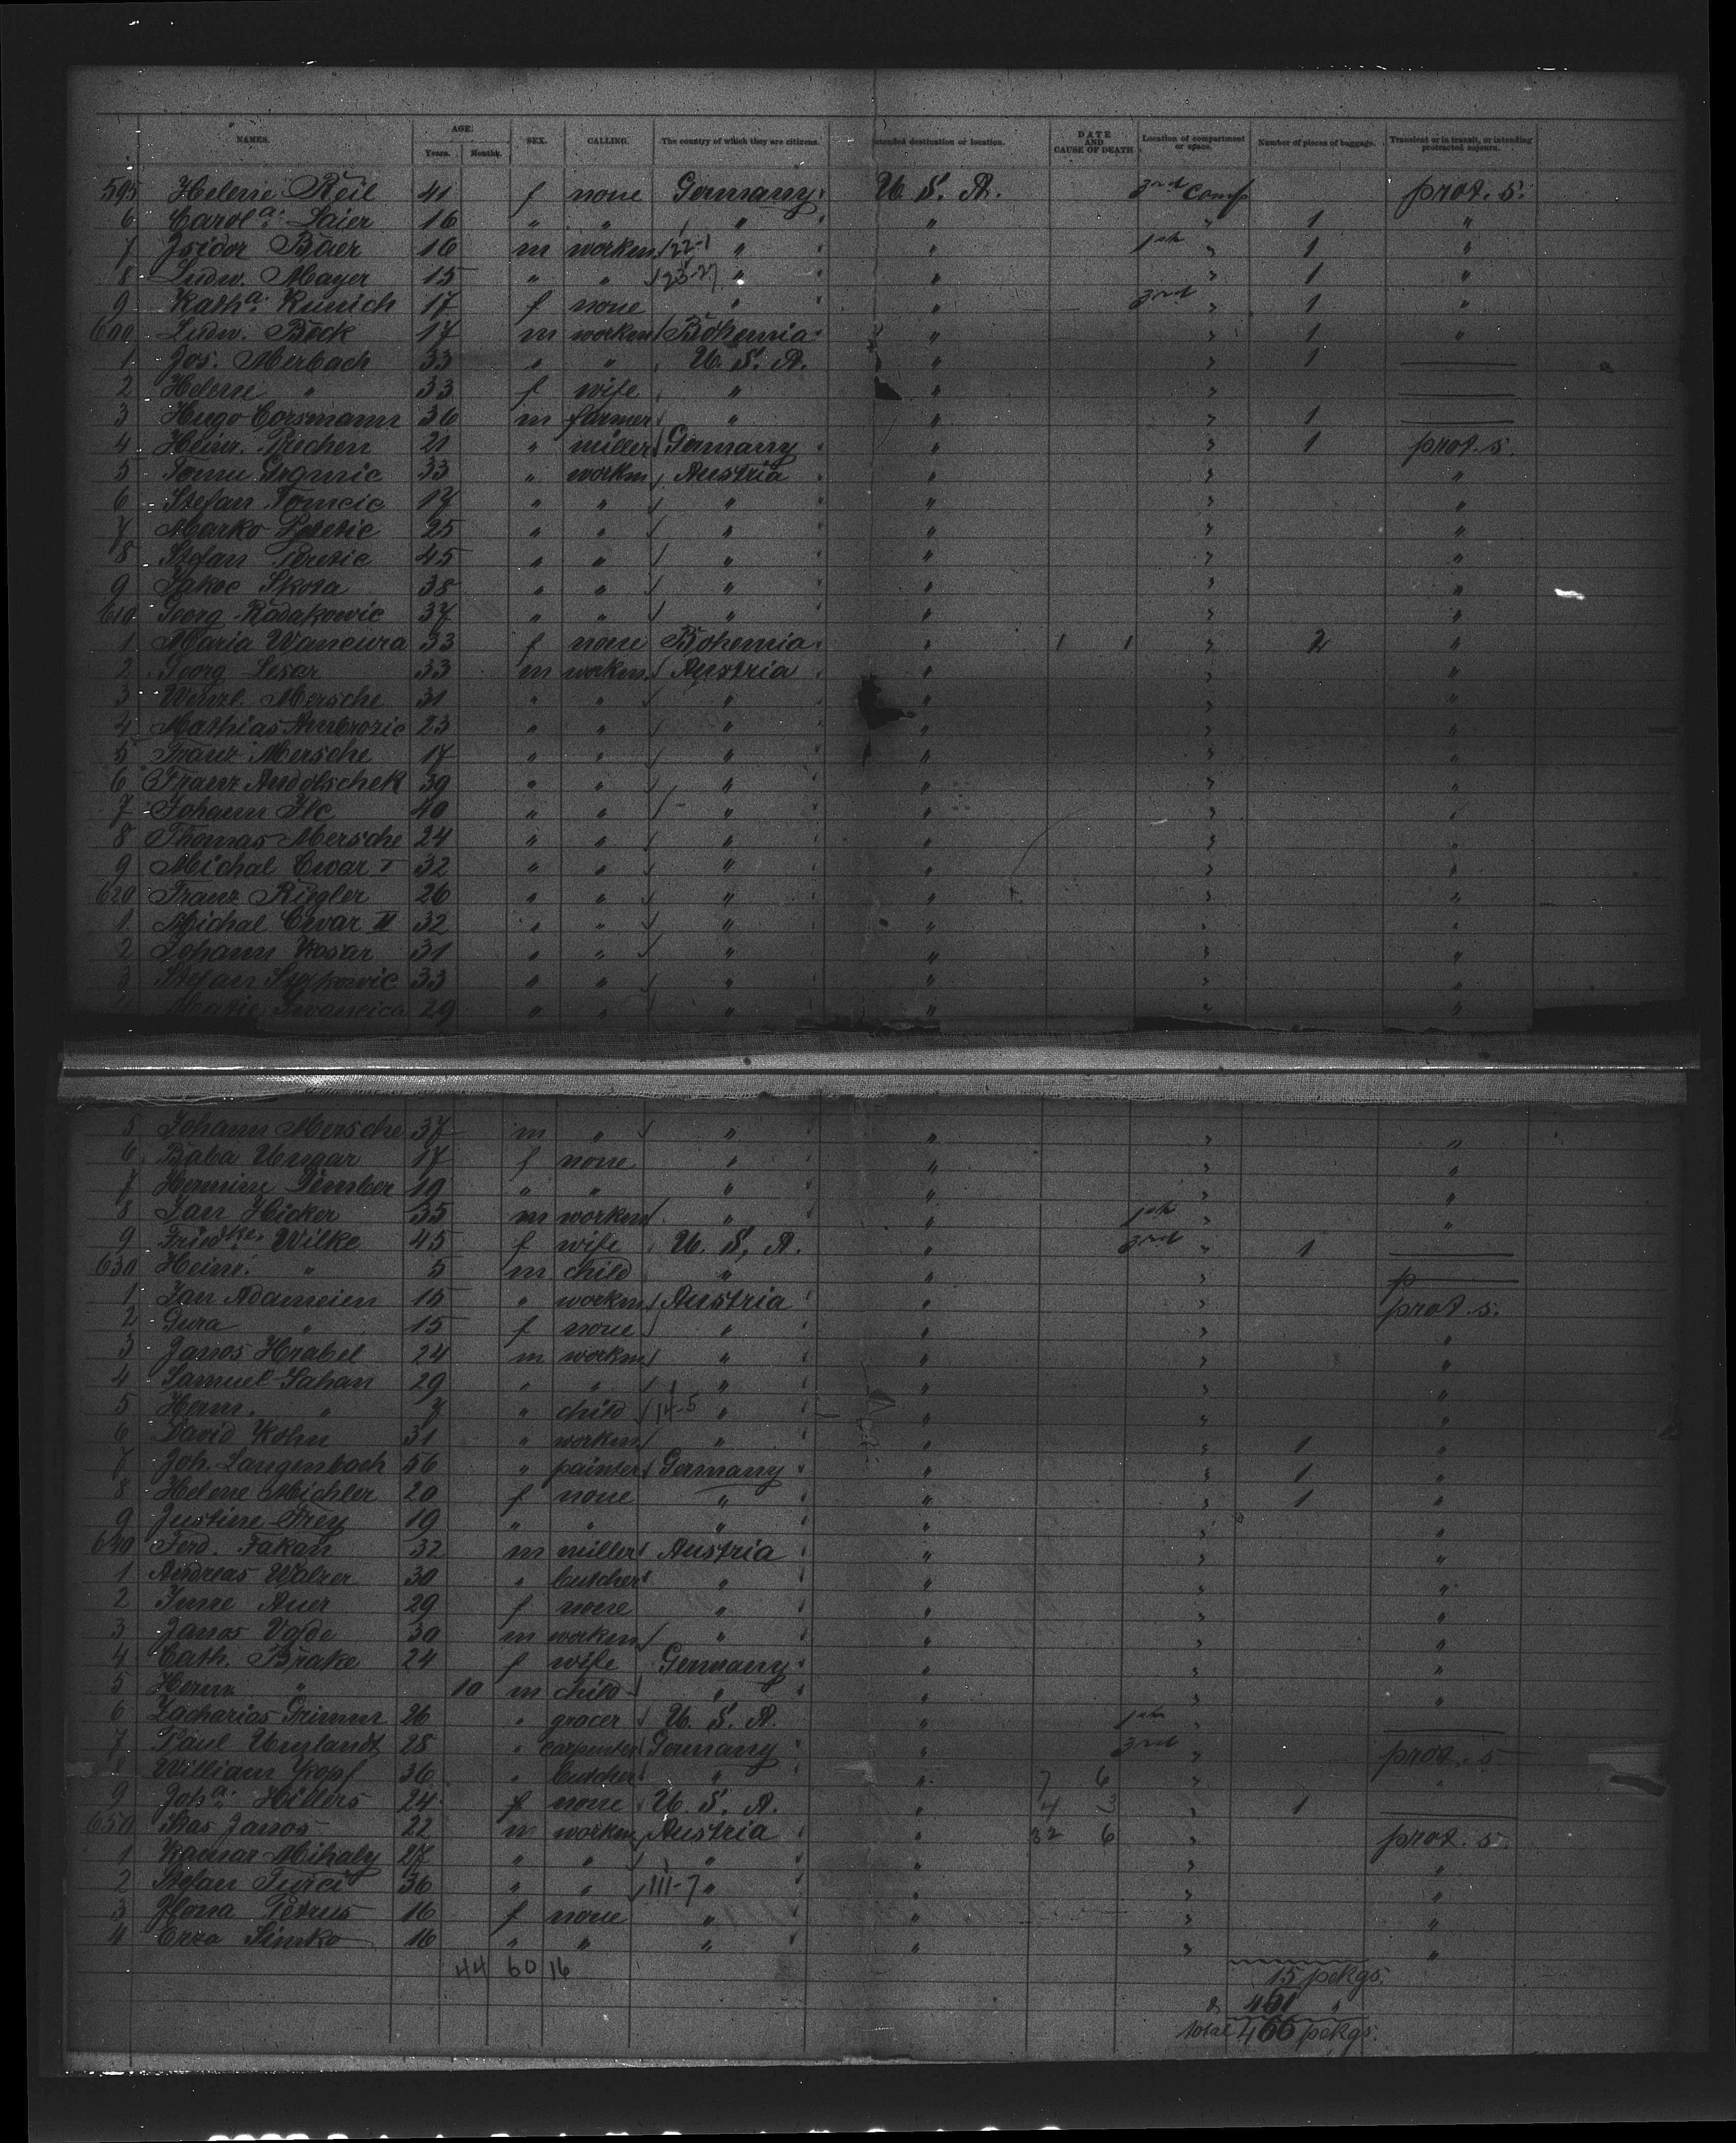 NAMES. AGE. Years. Months. SEX. CALLING. The country of which they are citizens. Intended destination or location. DATE AND CAUSE OF DEATH Location of compartment or space. Number of pieces of baggage. Transient or in transit, or intending protracted sojourn.
595 Helene Reil 41 f none Germany U. S. A. 3rd comp prot. s.
6 Carola Laier 16 " " " " " 1 "
7 Isidor Baer 16 m workm 122-1 " " 1st " 1 "
8 Ludw. Mayer 15 " " 123-27 " " " 1 "
9 Katha. Kunich 17 f none " " 3rd " 1 "
600 Ludw. Bock 17 m workm Bohemia " " 1 "
1 Jos. Merbach 33 " " U. S. A. " " 1
2 Helene " 33 f wife " " "
3 Hugo Corsmann 36 m farmer " " " 1
4 Heinr. Riechen 21 " miller Germany " " 1 prot. s.
5 Tomu 33 " workm Austria " " "
6 Stefan Tomcic 17 " " " " " "
7 Marko 25 " " " " " "
8 Stefan Peretic 45 " " " " " "
9 Jakoc Skota 38 " " " " " "
610 Georg Radakowic 37 " " " " " "
1 Maria Wancura 33 f none Bohemia " 1 1 " 2 "
2 Georg Lesar 33 m workm. Austria " " "
3 Wenzl. Mersche 31 " " " " " "
4 Mathias Ambrozic 23 " " " " " "
5 Franz Mersche 17 " " " " " "
6 Franz Andolschek 39 " " " " " "
7 Johann Ilc 40 " " " " " "
8 Thomas Mersche 24 " " " " " "
9 Michal Cwar I 32 " " " " " "
620 Franz Riegler 26 " " " " " "
1 Michal Cwar II 32 " " " " " "
2 Johann Kosar 31 " " " " " "
3 Stefan 33 " " " " " "
Matic 29 " " " " " "
5 Johann Mersche 37 m " " " " "
6 Baba Ungar 17 f none " " " "
7 Hermine 19 " " " " " "
8 Jan Hicker 35 m workm " " 1st " "
9 Friedke. Wilke 45 f wife U. S. A. " 3rd " 1
630 Heinr. " 5 m child " " " p
1 Jan Adameien 15 " workm Austria " " prot. s.
2 Gura " 15 f none " " " "
3 Janos Hrabel 24 m workm " " " "
4 Samuel Sahan 29 " " " " " "
5 Herm. " 7 " child 14-5 " " " "
6 David Kohn 31 " workm " " " 1 "
7 Joh. Langenbach 56 " painter Germany " " 1 "
8 Helene Michler 20 f none " " " 1 "
9 Justine Frey 19 " " " " " "
640 Ferd. Fakan 32 m miller Austria " " "
1 Andreas Walzer 30 " butcher " " " "
2 Imre Auer 29 f none " " " "
3 Janos 30 m workm " " " "
4 Cath. Brake 24 f wife Germany " " "
5 Herm " 10 m child " " " "
6 Zacharias Grimm 26 " grocer U. S. A. " 1st "
7 Paul Umlandt 28 " carpenter Germany " 3rd " prot. s
8 William Kopf 36 " butcher " " 7 6 " "
9 Joha. Hillers 24 f none U. S. A. " 4 3 " 1
650 Skas Janos 22 m workm Austria " 32 6 " prot. s.
1 Kamar Mihaly 27 " " " " " "
2 Stefan Turci 36 " " 111-7 " " " "
3 Ilona Petrus 16 f none " " " "
4 Erza Simko 16 " " " " " "
44 60 16
15 pckgs.
& 451 "
total 466 pckgs.